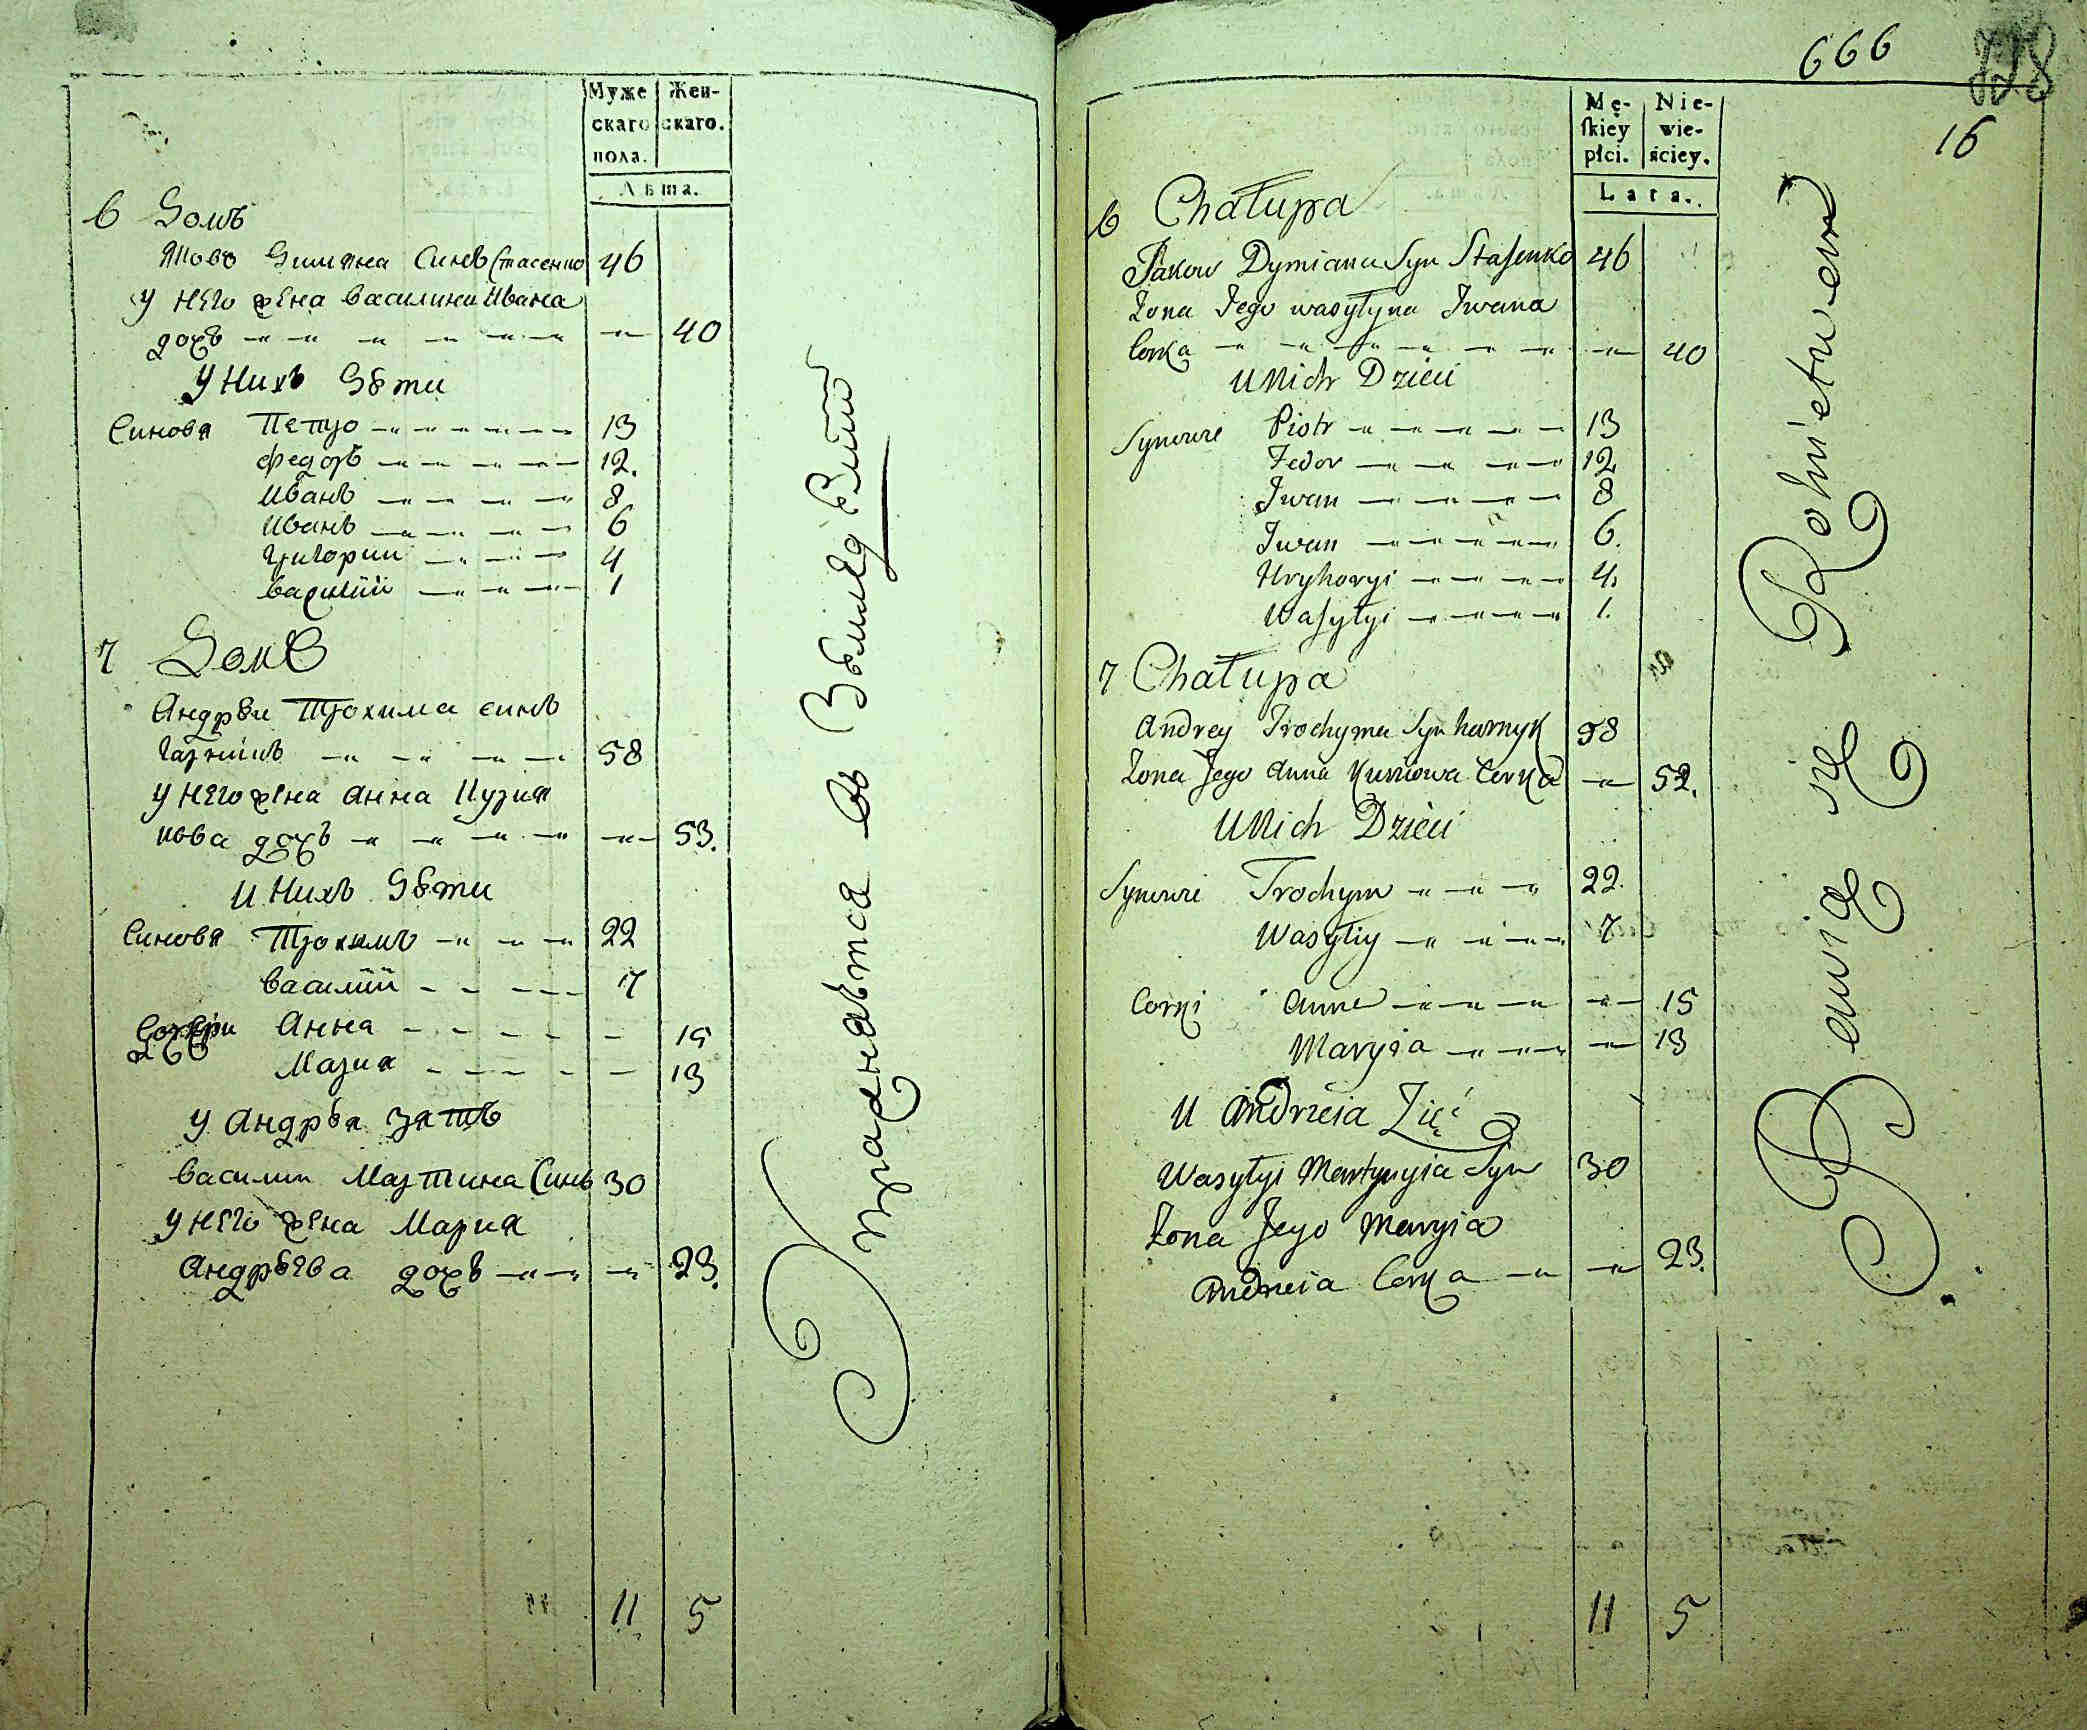 Муже
скаго
пола.
Жен-
скаго.
Лѣта.
6 Домъ
Яковъ Димияна Синъ Стасенко 46
У него жена Василина Ивана
дочь 40
У Нихъ Дѣти
Синовя Петро 13
Федоръ 12.
Иванъ 8
Иванъ 6
Григории 4
Василий 1
7 Домъ
Андрѣи Трохима синъ
Гарникъ 58
У него жена Анна Кузмя
кова дочь 53.
И Нихъ Дѣти
Синовя Трохимъ 22
Василий 7
Дочери Анна 15
Мария 13
У Андрѣя зять
Василии Мартина Синъ 30
У него жена Мария
Андрѣева дочь 23.
11 5
Упражняется въ Земледѣлии
666
16
Mę-
skiey
płci.
Nie-
wie-
ściey.
Lata.
6 Chałupa
Jakow Dymiana Syn Stasenko 46
Żona Jego Wasyłyna Iwana
Corka 40
U Nich Dzieci
Synowie Piotr 13
Fedor 12
Iwan 8
Iwan 6.
Hryhoryi 4.
Wasyłyi 1.
7 Chałupa
Andrey Trochyma Syn harnyk 58
Żona Jego Anna Kuzniowa Corka 52.
U Nich Dzieci
Synowie Trochym 22.
Wasyłiy 7
Corki Anna 15
Maryia 13
U Andrzeia Zięć
Wasyłyi Martynyia Syn 30
Żona Jego Maryia
Andrzeia Corka 23.
11 5
Bawią się Rolnictwem